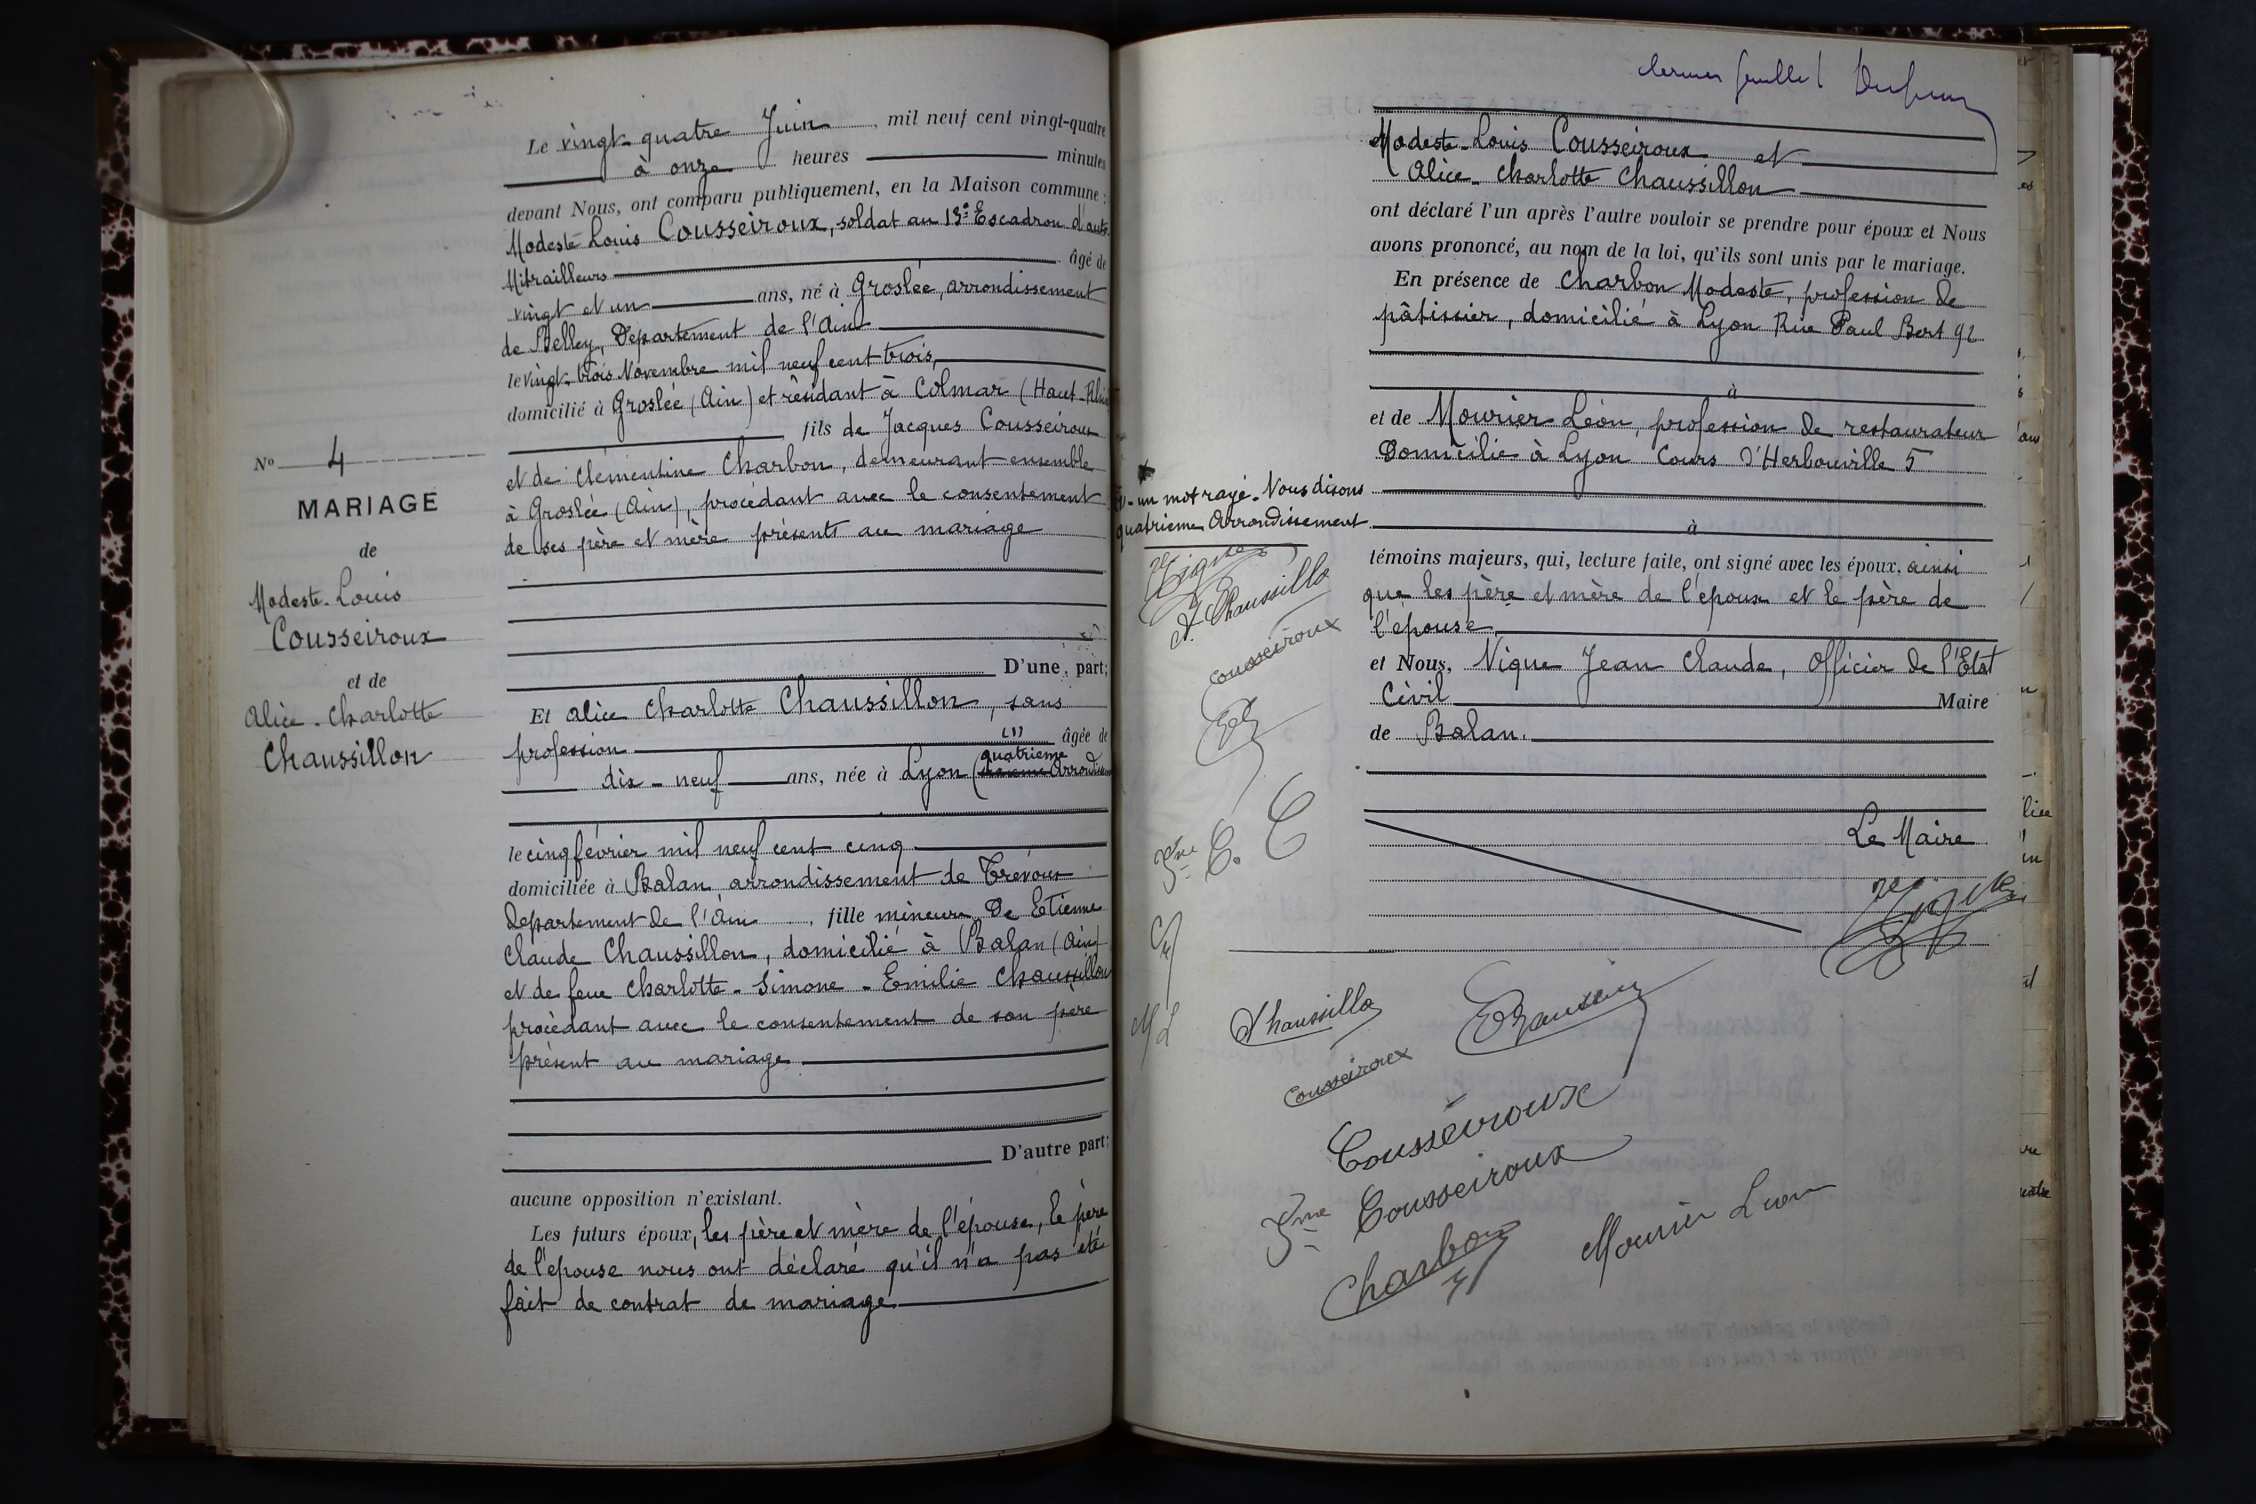 Le vingt-quatre Juin, mil neuf cent vingt-quatre
à onze heures minutes
devant Nous, ont comparu publiquement, en la Maison commune :
Modeste Louis Cousseiroux, soldat au 13e Escadron d'auto
Mitrailleurs âgé de
vingt et un ans, né à Groslée, arrondissement
de Belley, Département de l'Ain
le vingt-trois Novembre mil neuf cent trois,
domicilié à Groslée (Ain) et résidant à Colmar (Haut-Rhin
fils de Jacques Cousseiroux
et de Clémentine Charbon, demeurant ensemble
à Groslée (Ain), procédant avec le consentement
de ses père et mère présents au mariage
D'une part;
Et Alice Charlotte Chaussillon, sans
profession (1) âgée de
quatrième
dix-neuf ans, née à Lyon ( Arrondissem
le cinq février mil neuf cent cinq
domiciliée à Balan arrondissement de Trévoux
Département de l'Ain, fille mineure De Etienne
Claude Chaussillon, domicilié à Balan (Ain)
et de feue Charlotte-Simone-Emilie Chaussillon
procédant avec le consentement de son père
présent au mariage
D'autre part;
aucune opposition n'existant.
Les futurs époux, les père et mère de l'épouse, le père
de l'épouse nous ont déclaré qu'il n'a pas été
fait de contrat de mariage
No 4
MARIAGE
de
Modeste-Louis
Cousseiroux
et de
Alice-Charlotte
Chaussillon
dernier feuillet
Modeste-Louis Cousseiroux et
Alice-Charlotte Chaussillon
ont déclaré l'un après l'autre vouloir se prendre pour époux et Nous
avons prononcé, au nom de la loi, qu'ils sont unis par le mariage.
En présence de Charbon Modeste, profession de
pâtissier, domicilié à Lyon Rue Paul Bert 92
à
et de Mourier Léon, profession de restaurateur
Domicilié à Lyon Cours d'Herbouville 5
à
témoins majeurs, qui, lecture faite, ont signé avec les époux, ainsi
que les père et mère de l'époux et le père de
l'épouse
et Nous, Vigue Jean Claude, Officier de l'Etat
Civil Maire
de Balan.
Le Maire
(1)-un mot rayé. Nous disons
quatrième Arrondissement
A. Chaussillo
Cousseiroux
Fme C. C
M L
A Chaussillo
Cousseiroux
Cousseiroux
Fme Cousseiroux
Charbon
Mourier Léon